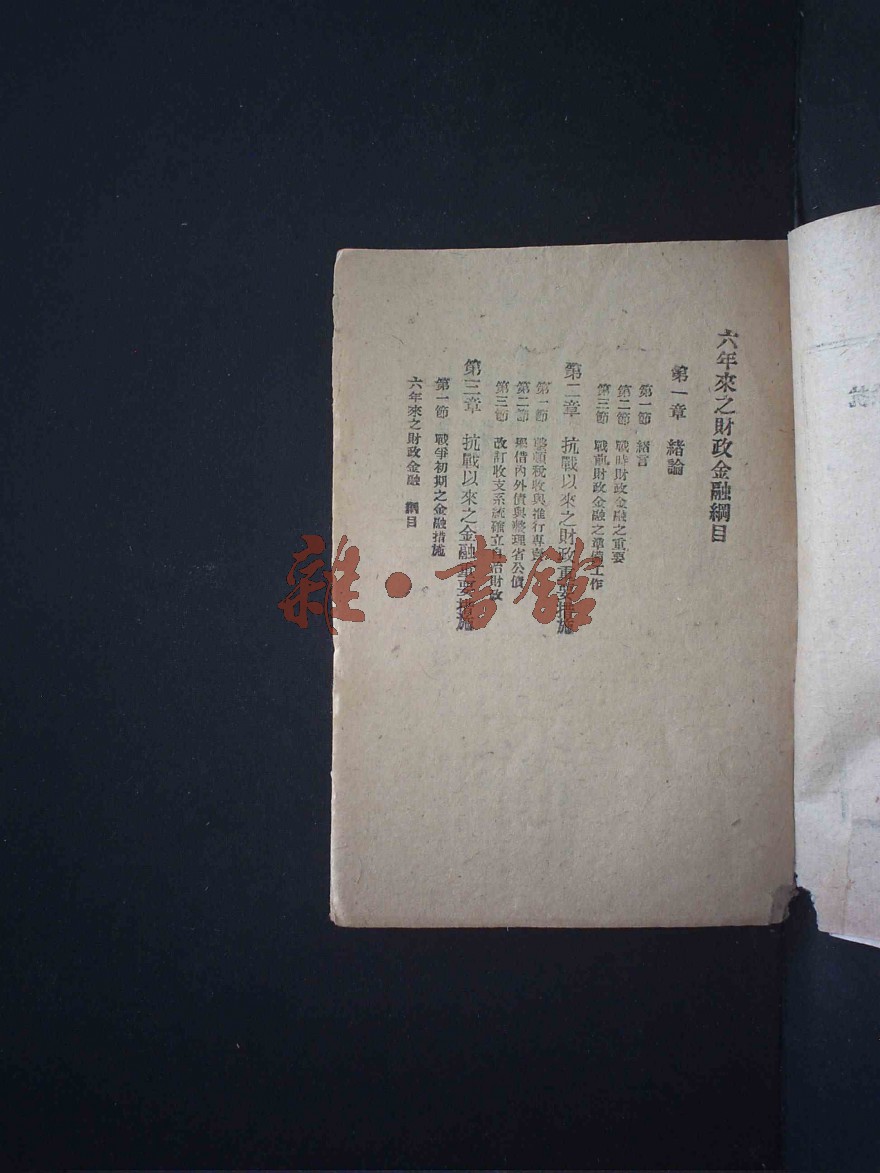 六年來之財政金融綱目
第一章 緒論
第一節 緒言
第二節 戰時財政金融之重要
第三節 戰前財政金融之準備工作
第二章 抗戰以來之財政重要措施
第一節 整頓稅收與推行專賣
第二節 舉借內外債與整理省公債
第三節 改訂收支系統確立自治財政
第三章 抗戰以來之金融重要措施
第一節 戰爭初期之金融措施
六年來之財政金融 綱目
雜·書館